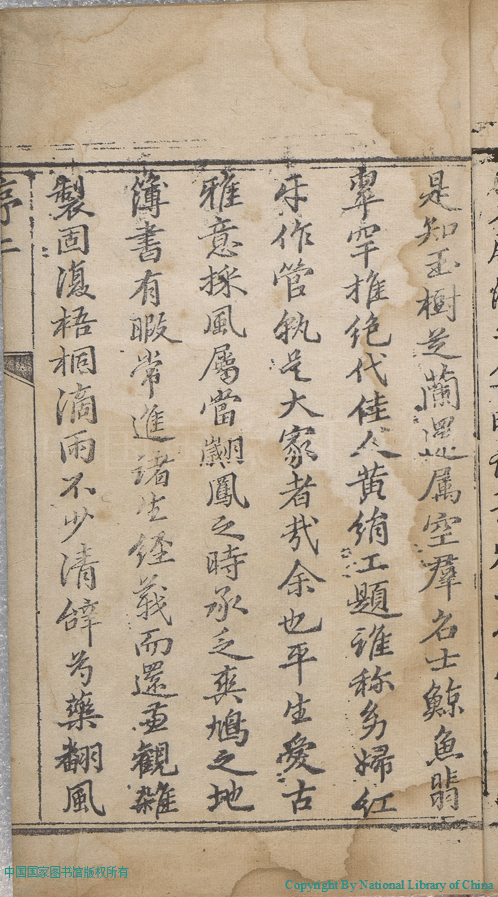 是知玉樹芝蘭還属空羣名士鯨魚翡
翠罕推绝代佳人黄絹工題誰称幼婦红
牙作管孰是大家者哉余也平生愛古
雅意採風屬當翽鳳之時承乏爽鳩之地
簿書有暇常進諸生經義而還兼觀雜
製固復梧桐滴雨不少清辞芍藥翻風
序二
中国国家图书馆版权所有
Copyright By National Library of China